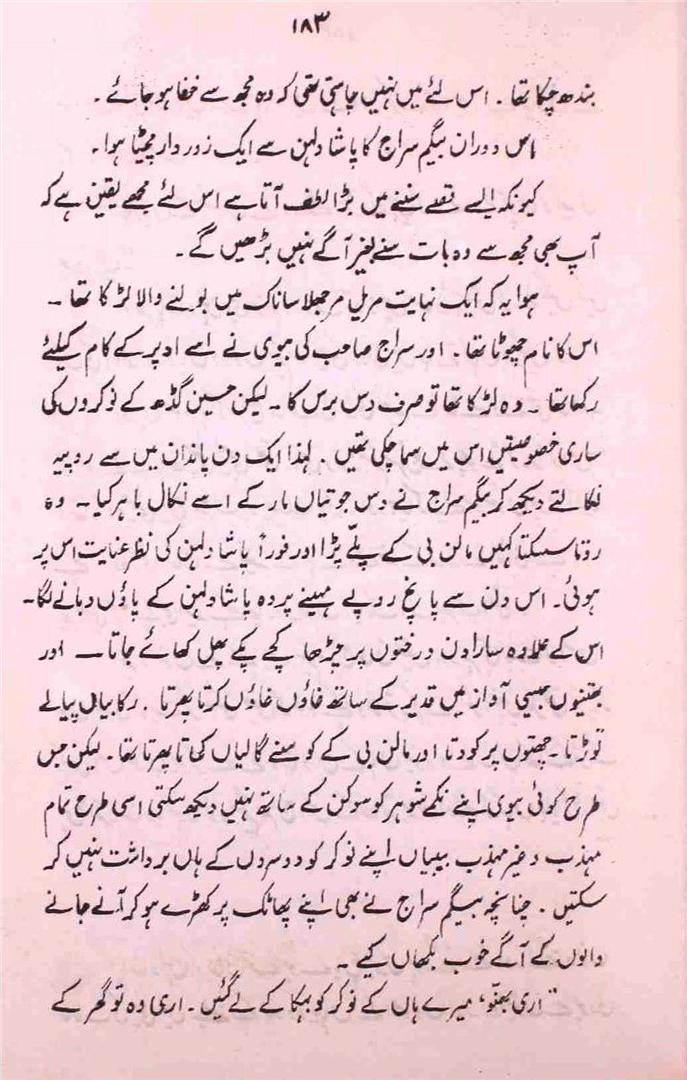 ۱۸۳
بندھ چکا تھا ۔ اس لئے میں نہیں چاہتی تھی کہ وہ مجھ سے خفا ہو جائے ۔
اس دوران بیگم سراج کا پاشا دلہن سے ایک زور دار جھپٹا ہوا ۔
کیونکہ ایسے قصے سننے میں بڑا لطف آتا ہے اس لئے مجھے یقین ہے کہ
آپ بھی مجھ سے وہ بات سنے بغیر آگے نہیں بڑھیں گے ۔
ہوا یہ کہ ایک نہایت مریل مرجھلا سا ناک میں بولنے والا لڑکا تھا ۔
اس کا نام چھوٹا تھا ۔ اور سراج صاحب کی بیوی نے اسے اوپر کے کام کیلئے
رکھا تھا ۔ وہ لڑکا تھا تو صرف دس برس کا ۔ لیکن حسین گڈھ کے نوکروں کی
ساری خصوصیتیں اس میں سما چکی تھیں ۔ لہذا ایک دن پاندان میں سے روپیہ
نکالتے دیکھ کر بیگم سراج نے دس جوتیاں مار کے اسے نکال باہر کیا ۔ وہ
روتا سسکتا کہیں مالن بی کے پلے پڑا اور فوراً پاشا دلہن کی نظر عنایت اس پر
ہوئی ۔ اس دن سے پانچ روپے مہینے پر وہ پاشا دلہن کے پاؤں دبانے لگا ۔
اس کے علاوہ سارا دن درختوں پر چڑھا کچے پکے پھل کھائے جاتا ۔ اور
بھتنیوں جیسی آواز میں قدیر کے ساتھ غاؤں غاؤں کرتا پھرتا ۔ رکابیاں پیالے
توڑتا ۔ چھتوں پر کودتا اور مالن بی کے کوسنے گالیاں کھاتا پھرتا تھا ۔ لیکن جس
طرح کوئی بیوی اپنے نکمے شوہر کو سوکن کے ساتھ نہیں دیکھ سکتی اسی طرح تمام
مہذب و غیر مہذب بیبیاں اپنے نوکر کو دوسروں کے ہاں برداشت نہیں کر
سکتیں ۔ چنانچہ بیگم سراج نے بھی اپنے پھاٹک پر کھڑے ہو کر آنے جانے
والوں کے آگے خوب بکھان کیے ۔
"اری بھتو، میرے ہاں کے نوکر کو بہکا کے لے گئیں ۔ اری وہ تو گھر کے